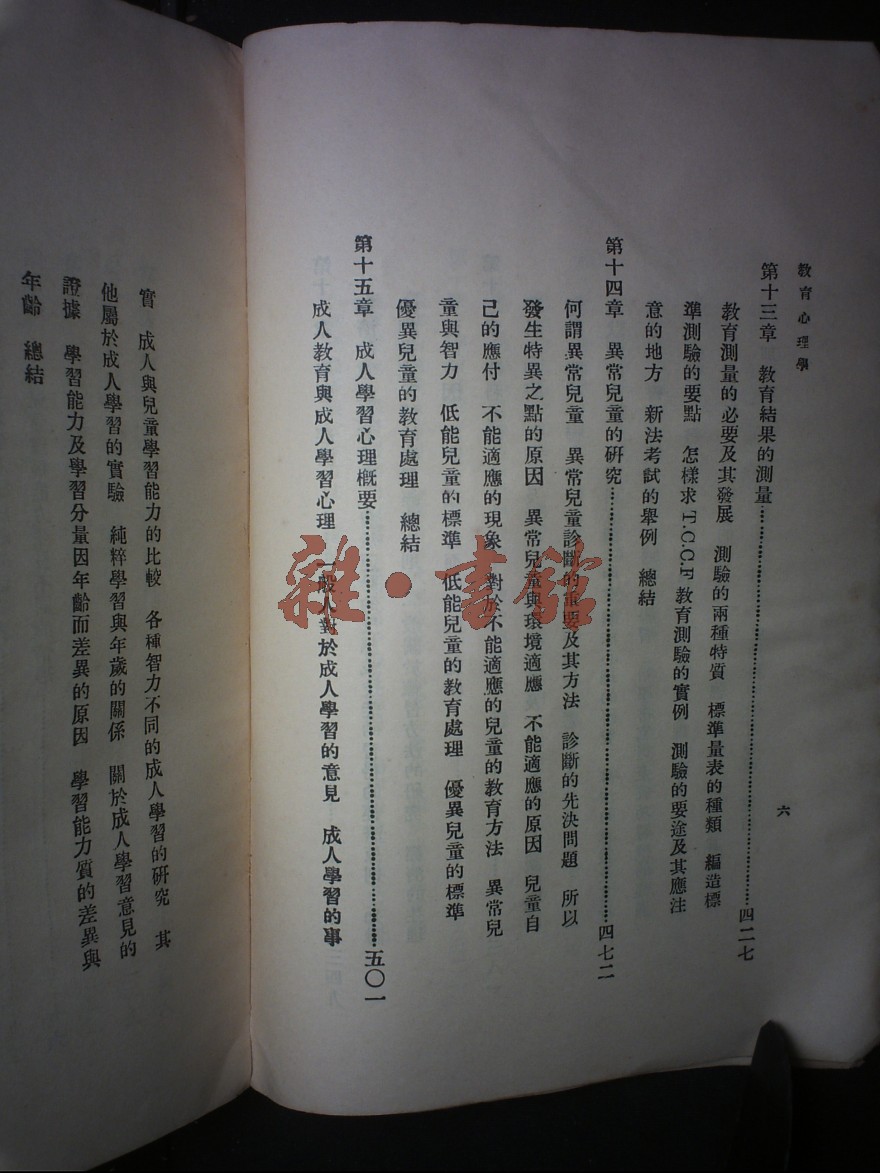 教育心理學
六
第十三章 教育結果的測量……四二七
教育測量的必要及其發展 測驗的兩種特質 標準量表的種類 編造標
準測驗的要點 怎樣求T.C.C.F.教育測驗的實例 測驗的要途及其應注
意的地方 新法考試的舉例 總結
第十四章 異常兒童的研究……四七二
何謂異常兒童 異常兒童診斷的重要及其方法 診斷的先決問題 所以
發生特異之點的原因 異常兒童與環境適應 不能適應的原因 兒童自
己的應付 不能適應的現象 對於不能適應的兒童的教育方法 異常兒
童與智力 低能兒童的標準 低能兒童的教育處理 優異兒童的標準
優異兒童的教育處理 總結
第十五章 成人學習心理概要……五〇一
成人教育與成人學習心理 一般人對於成人學習的意見 成人學習的事
實 成人與兒童學習能力的比較 各種智力不同的成人學習的研究 其
他屬於成人學習的實驗 純粹學習與年歲的關係 關於成人學習意見的
證據 學習能力及學習分量因年齡而差異的原因 學習能力質的差異與
年齡 總結
雜·書館